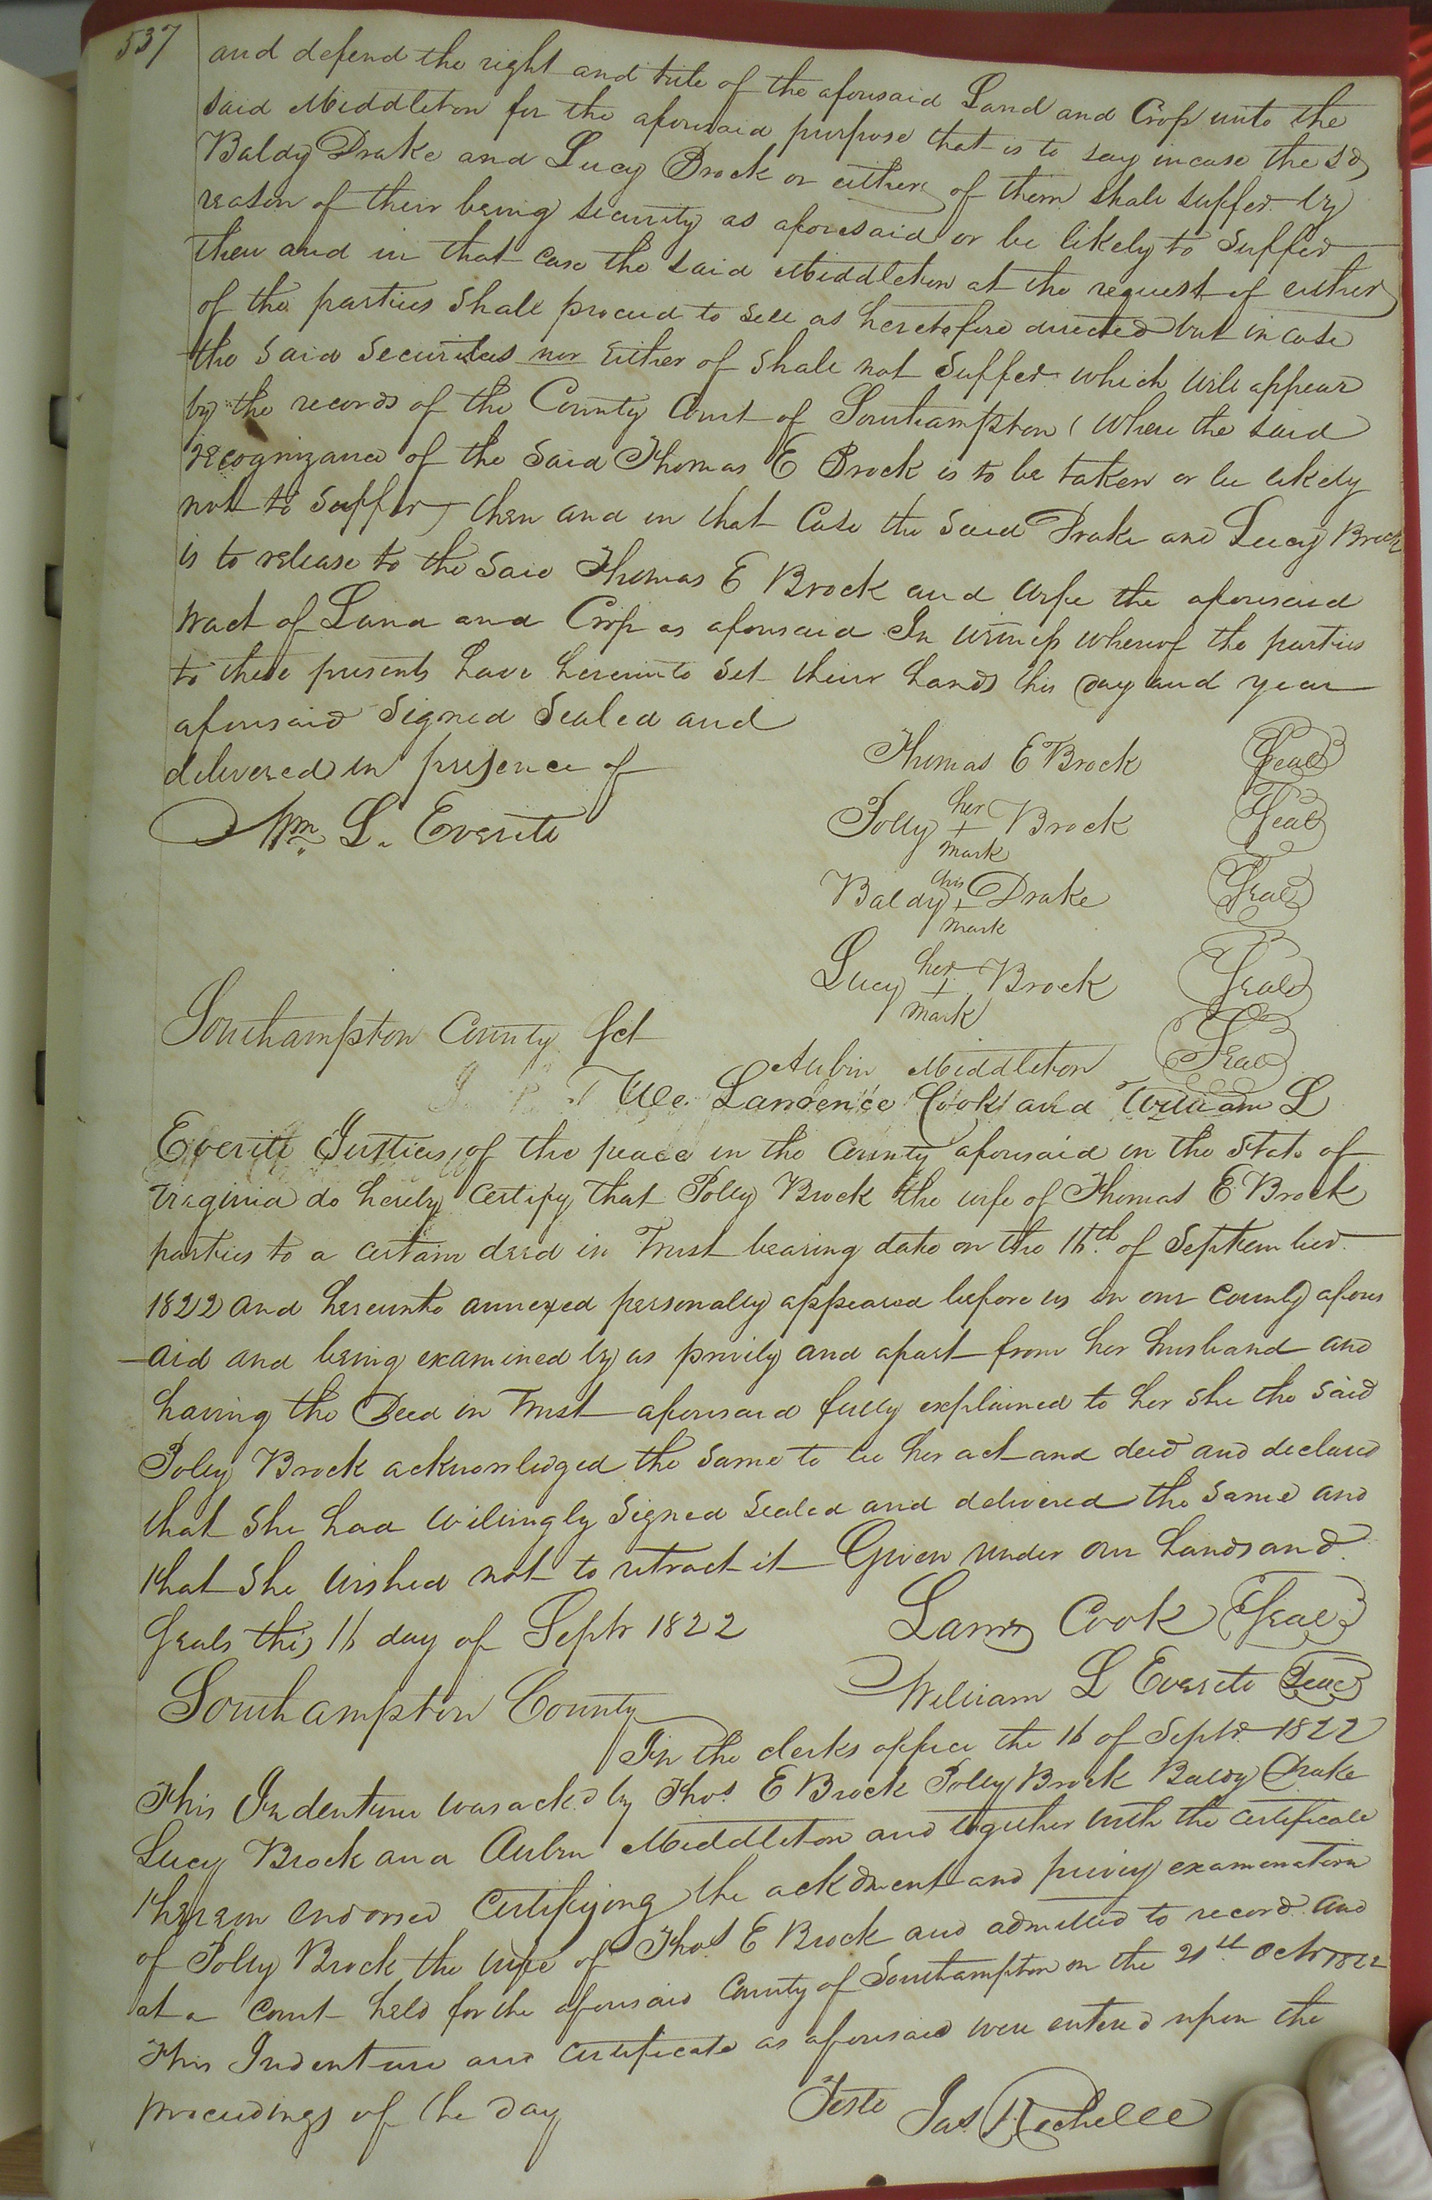 537
and defend the right and title of the aforesaid Land and Crop unto the
said Middleton for the aforesaid purpose that is to say incase the sd
Baldy Drake and Lucy Brock or either of them shall suffer by
reason of their being security as aforesaid or be likely to suffer
then and in that case the said Middleton at the request of either
of the parties shall proceed to sell as heretofore directed but in case
the said securities nor either of shall not suffer which will appear
by the records of the County Court of Southampton (where the said
recognizance of the said Thomas E Brock is to be taken or be likely
not to suffer) then and in that case the said Drake and Lucy Brock
is to release to the said Thomas E Brock and wife the aforesaid
tract of Land and Crop as aforesaid In witness whereof the parties
to these presents have hereunto set their hands this day and year
aforesaid Signed Sealed and
delivered in presence of
Wm L. Everitt
Thomas E Brock Seal
Polly her + mark Brock Seal
Baldy his + mark Drake Seal
Lucy her + mark Brock Seal
Aubin Middleton Seal
Southampton County Sct
We Lawrence Cook and William L
Everitt Justices of the peace in the County aforesaid in the State of
Virginia do hereby certify that Polly Brock the wife of Thomas E Brock
parties to a certain deed in Trust bearing date on the 16th of September
1822 and hereunto annexed personally appeared before us in our County afores
aid and being examined by us privily and apart from her husband and
having the Deed in Trust aforesaid fully explained to her she the said
Polly Brock acknowledged the same to be her act and deed and declared
that she had willingly signed sealed and delivered the same and
that she wished not to retract it Given under our hands and
Seals this 16 day of Septr 1822
Lawr Cook Seal
William L Everitt Seal
Southampton County
In the clerks office the 16 of Septr 1822
This Indenture was ackd by Thos E Brock Polly Brock Baldy Drake
Lucy Brock and Aubin Middleton and together with the certificate
thereon endorsed certifying the ackdment and privy examination
of Polly Brock the wife of Thos E Brock and admitted to record and
at a Court held for the aforesaid County of Southampton on the 21st Octr 1822
This Indenture and certificate as aforesaid were entered upon the
proceedings of the day
Teste Jas Rochelle